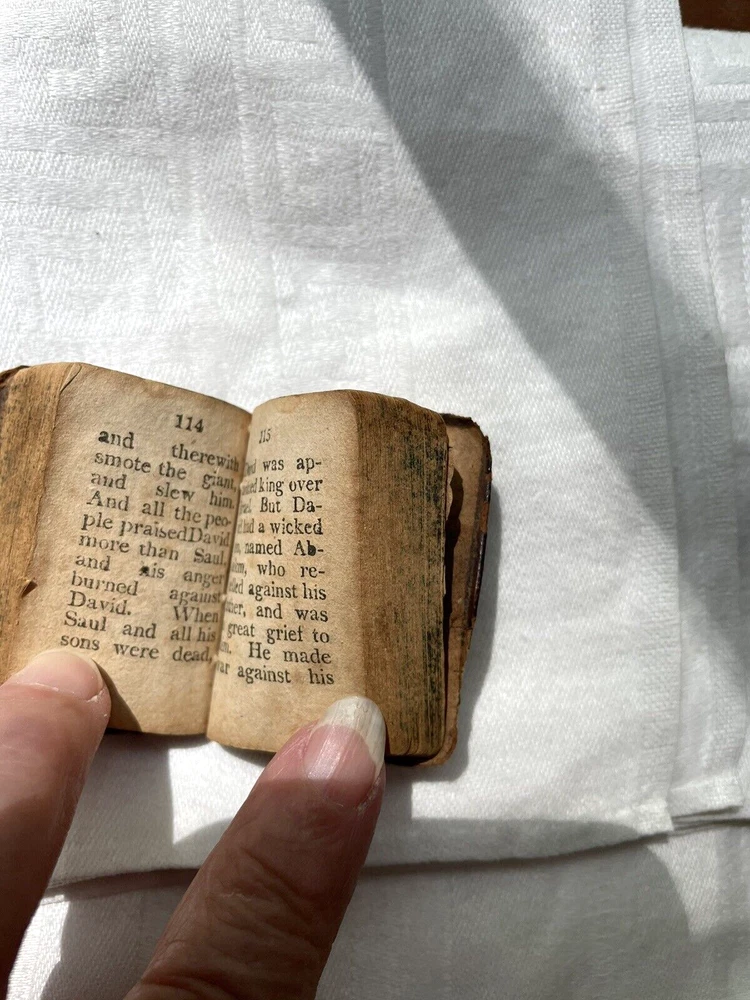 114
and therewith
smote the giant,
and slew him.
And all the peo-
ple praised David
more than Saul,
and his anger
burned against
David. When
Saul and all his
sons were dead,
115
was ap-
king over
But Da-
had a wicked
named Ab-
who re-
against his
and was
great grief to
He made
against his